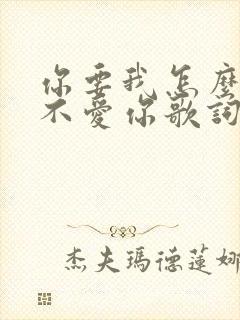 你要我怎麼
不愛你歌詞
杰夫瑪德蓮娜